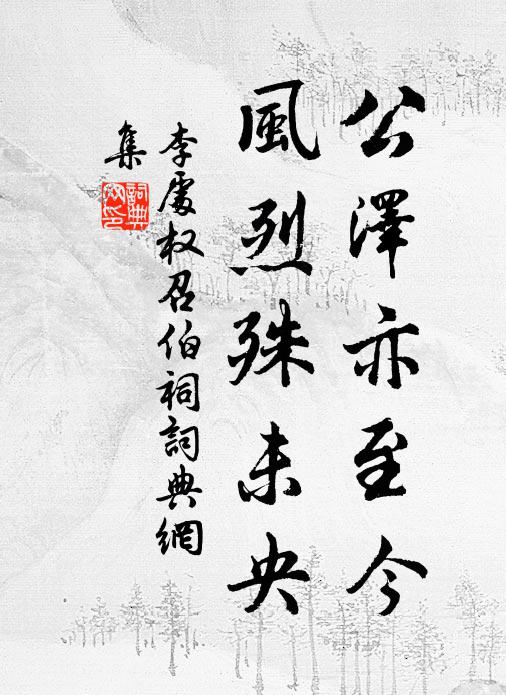 公澤亦至今
風烈殊未央
李處权召伯祠詞典網
集
詞典
网印